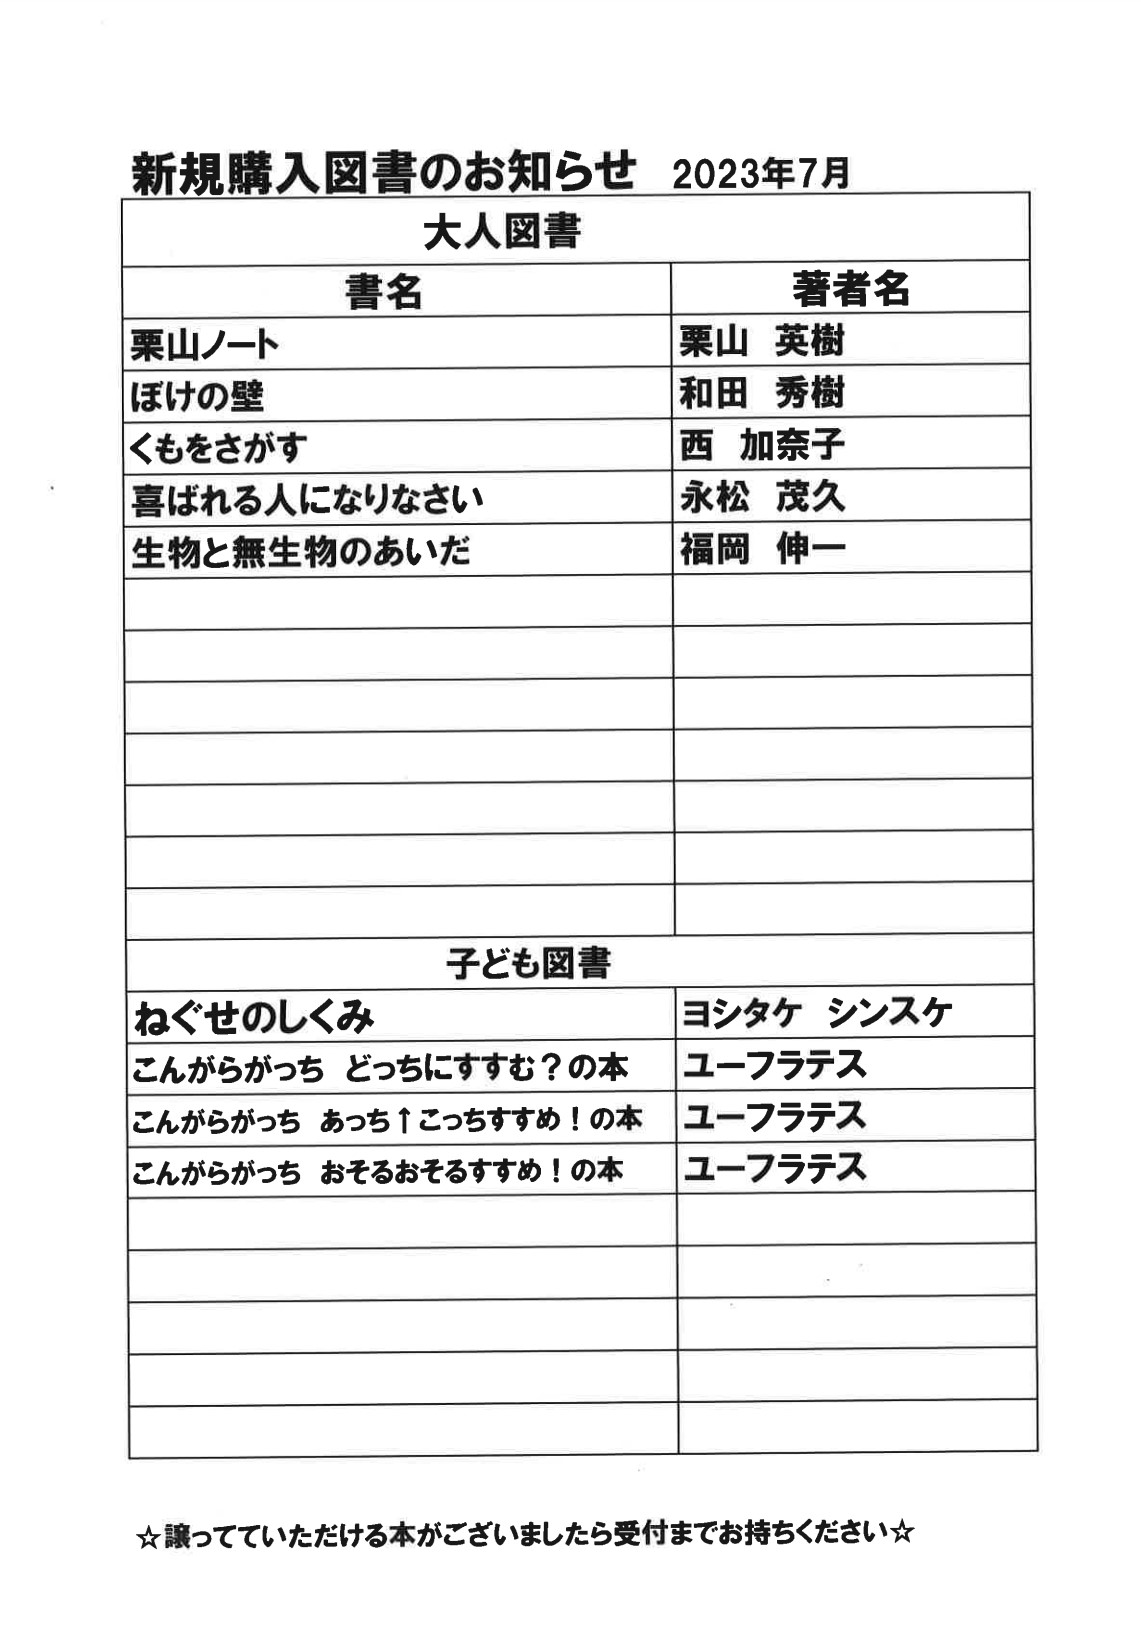 新規購入図書のお知らせ 2023年7月
大人図書
書名 著者名
栗山ノート 栗山 英樹
ぼけの壁 和田 秀樹
くもをさがす 西 加奈子
喜ばれる人になりなさい 永松 茂久
生物と無生物のあいだ 福岡 伸一
子ども図書
ねぐせのしくみ ヨシタケ シンスケ
こんがらがっち どっちにすすむ？の本 ユーフラテス
こんがらがっち あっち↑こっちすすめ！の本 ユーフラテス
こんがらがっち おそるおそるすすめ！の本 ユーフラテス
☆譲ってていただける本がございましたら受付までお持ちください☆